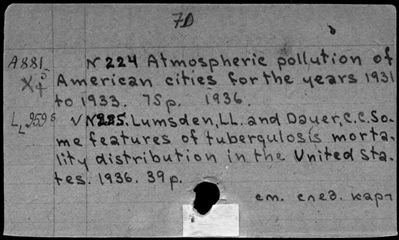 70
A881 N 224 Atmospheric pollution of
X4 American cities for the years 1931
to 1933. 75p. 1936.
L 959 VN225. Lumsden, LL. and Dauer, C.C. So-
me features of tuberqulosis morta-
lity distribution in the United Sta-
tes. 1936. 39p.
см. след. карт